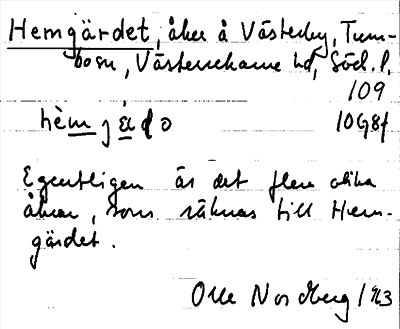 Hemgärdet, åker å Västerby, Tum-
bosn, Västerrekarne hd, Söd. l.
109
hèmjádo 10G8f
Egentligen är det flera olika
åkrar, som räknas till Hem-
gärdet.
Olle Nordberg 1963